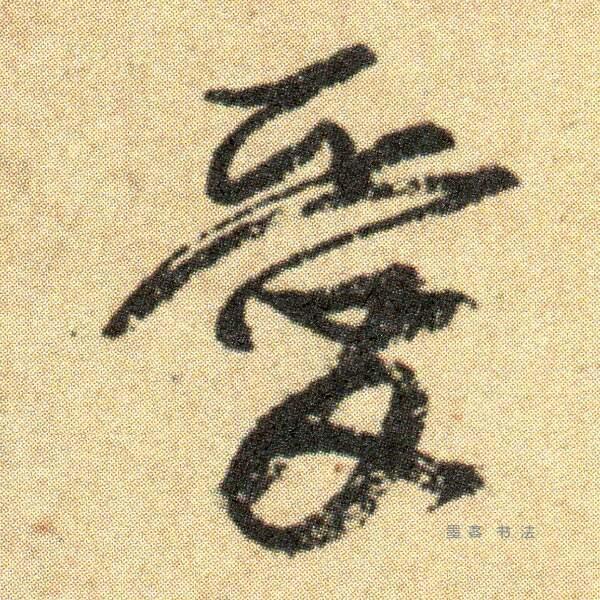 愛
墨客书法